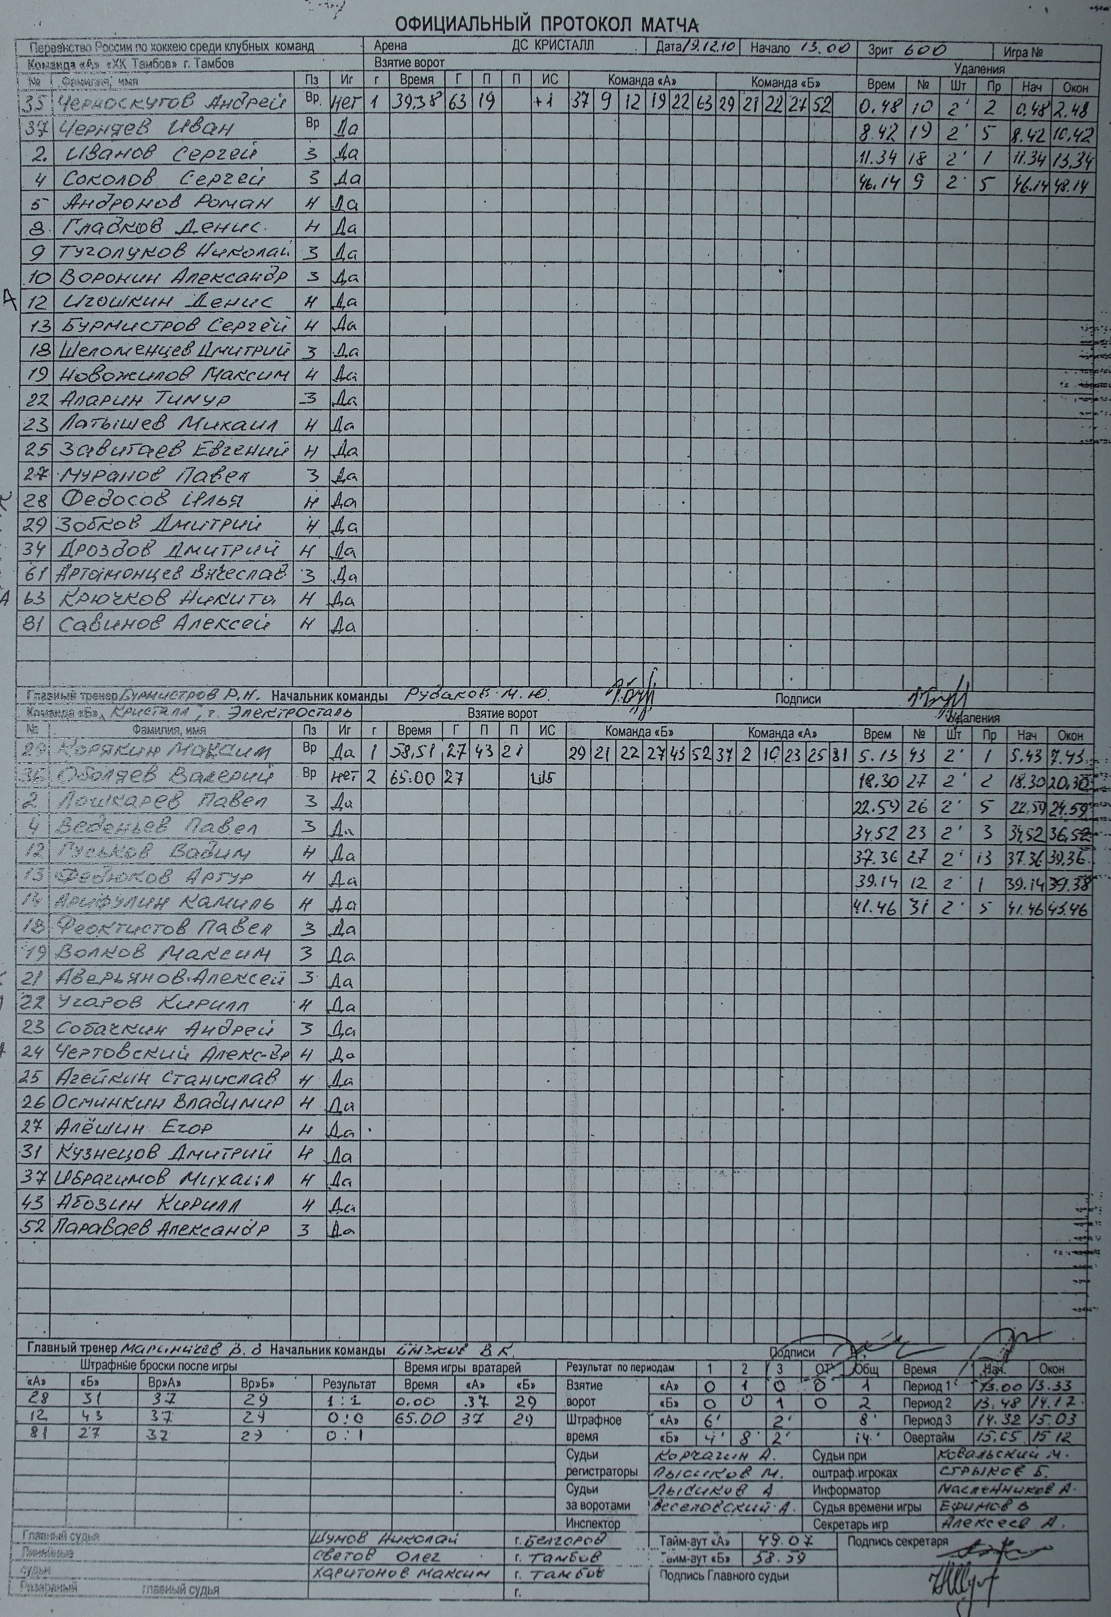 ОФИЦИАЛЬНЫЙ ПРОТОКОЛ МАТЧА
Первенство России по хоккею среди клубных команд Арена ДС КРИСТАЛЛ Дата 19.12.10 Начало 13.00 Зрит 600 Игра №
Команда «А» «ХК Тамбов» г. Тамбов Взятие ворот Удаления
№ Фамилия, имя Пз Иг г Время Г П П ИС Команда «А» Команда «Б» Врем № Шт Пр Нач Окон
35 Черноскутов Андрей Вр. нет 1 39.38 63 19 +1 37 9 12 19 22 63 29 21 22 27 52 0.48 10 2' 2 0.48 2.48
37 Черняев Иван Вр Да 8.42 19 2' 5 8.42 10.42
2. Иванов Сергей З Да 11.34 18 2' 1 11.34 13.34
4 Соколов Сергей З Да 46.14 9 2' 5 46.14 48.14
5 Андронов Роман Н Да
8 Гладков Денис. Н Да
9 Туголуков Николай З Да
10 Воронин Александр З Да
12 Игошкин Денис Н Да
13 Бурмистров Сергей Н Да
18 Шеломенцев Дмитрий З Да
19 Новожилов Максим Н Да
22 Аларин Тимур З Да
23 Латышев Михаил Н Да
25 Завитаев Евгений Н Да
27 Муранов Павел З Да
28 Федосов Илья Н Да
29 Зобков Дмитрий Н Да
34 Дроздов Дмитрий Н Да
61 Артамонцев Вячеслав З Да
63 Крючков Никита Н Да
81 Савинов Алексей Н Да
Главный тренер Бурмистров Р.Н. Начальник команды Рудаков М.Ю. Подписи
Команда «Б» Кристалл, г. Электросталь Взятие ворот Удаления
№ Фамилия, имя Пз Иг г Время Г П П ИС Команда «Б» Команда «А» Врем № Шт Пр Нач Окон
29 Корякин Максим Вр Да 1 58.51 27 43 21 29 21 22 27 43 52 37 2 10 23 25 81 5.13 43 2' 1 5.43 7.43
36 Оболяев Валерий Вр нет 2 65.00 27 ШБ 18.30 27 2' 2 18.30 20.30
2 Лошкарев Павел З Да 22.59 26 2' 5 22.59 24.59
4 Веденьев Павел З Да 34.52 23 2' 3 34.52 36.52
12 Гуськов Вадим Н Да 37.36 27 2' 13 37.36 39.36
13 Федюков Артур Н Да 39.14 12 2' 1 39.14 39.38
14 Арифулин Камиль Н Да 41.46 31 2' 5 41.46 43.46
18 Феоктистов Павел З Да
19 Волков Максим З Да
21 Аверьянов Алексей З Да
22 Угаров Кирилл Н Да
23 Собачкин Андрей З Да
24 Чертовский Алекс-др Н Да
25 Агейкин Станислав Н Да
26 Осминкин Владимир Н Да
27 Алёшин Егор Н Да
31 Кузнецов Дмитрий Н Да
37 Ибрагимов Михаил Н Да
43 Абозин Кирилл Н Да
52 Параваев Александр З Да
Главный тренер Начальник команды Подписи
Штрафные броски после игры Время игры вратарей Результат по периодам 1 2 3 ОТ Общ Время Нач. Окон
«А» «Б» Вр»А» Вр»Б» Результат Время «А» «Б» Взятие «А» 0 1 0 0 1 Период 1 13.00 13.33
28 31 37 29 1:1 0.00 37 29 ворот «Б» 0 0 1 0 2 Период 2 13.48 14.17
12 43 37 29 0:0 65.00 37 29 Штрафное «А» 6' 2' 8' Период 3 14.32 15.03
81 27 37 29 0:1 время «Б» 4' 8' 2' 14' Овертайм 15.05 15.12
Судьи Корчагин А. Судьи при Ковальский М.
регистраторы Лысиков М. оштраф.игроках Стрыков Б.
Судьи Лысиков А Информатор Масленников А.
за воротами Веселовский А. Судья времени игры Ефимов В
Инспектор Секретарь игр Алексеев А.
Главный судья Шумов Николай г. Белгород Тайм-аут «А» 49.07 Подпись секретаря
Линейные Светов Олег г. Тамбов Тайм-аут «Б» 58.59
судьи Харитонов Максим г. Тамбов Подпись Главного судьи
Резервный главный судья г.